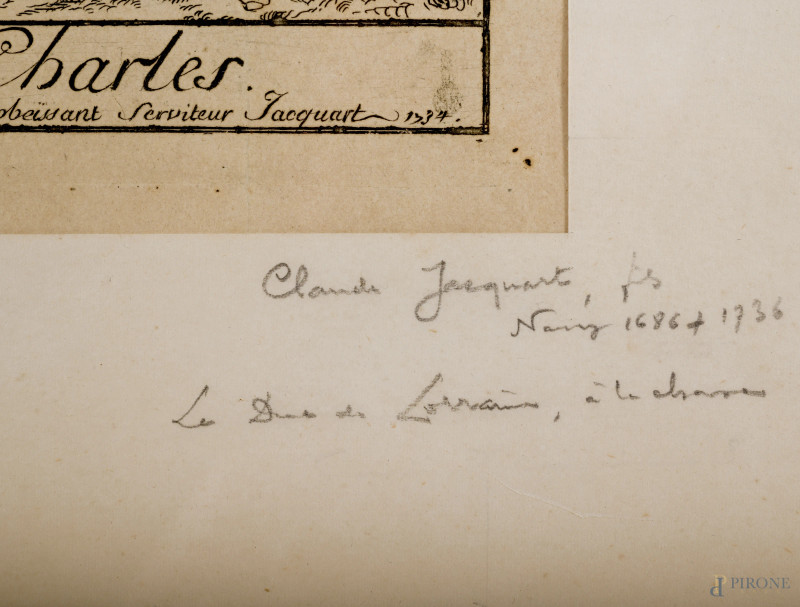 Charles.
obeïssant Serviteur Jacquart 1734.
Claude Jacquart, fils
Nancy 1686 + 1736
Le Duc de Lorraine, à la chasse
PIRONE